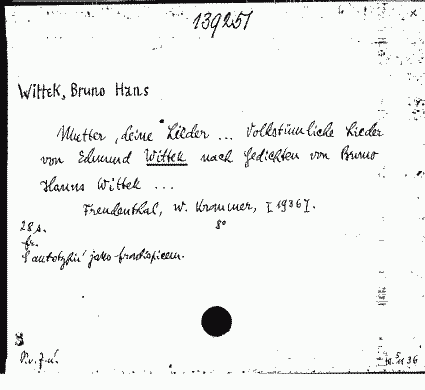 139251
Wittek, Bruno Hans
Mutter, deine Lieder ... Volkstümliche Lieder
von Edmund Wittek nach Gedichten von Bruno
Hanns Wittek ...
Freudenthal, W. Krommer, [1936].
28 s. 8°
fr.
jako frontispicem.